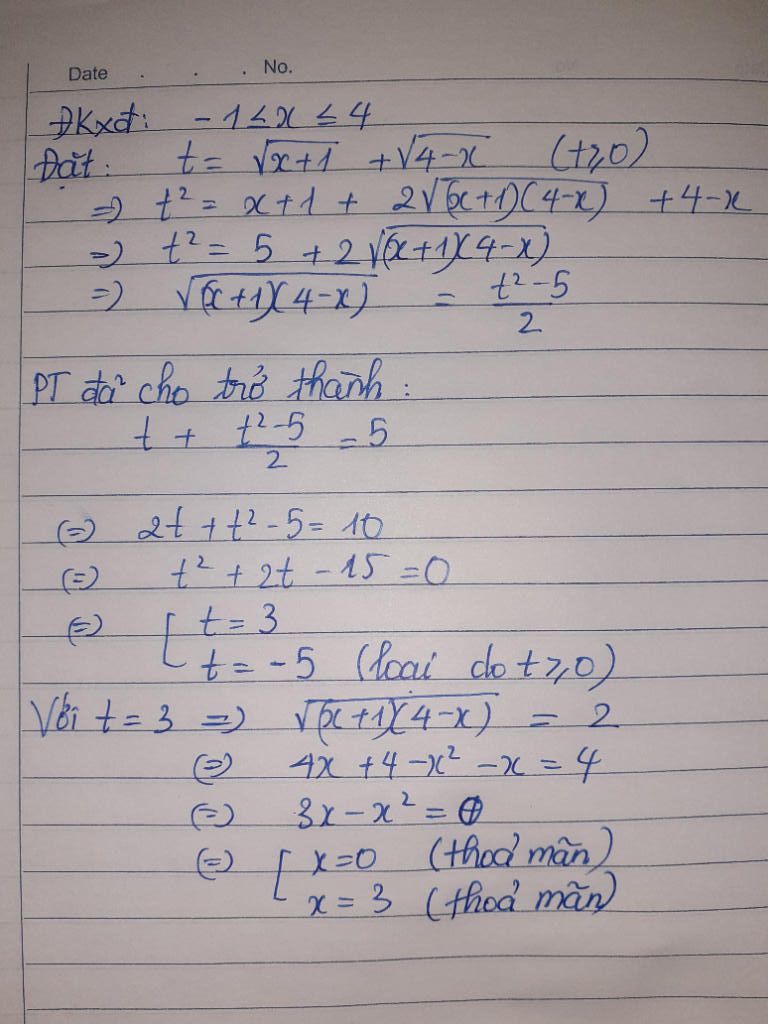 Date . . . No.
ĐKxđ: -1 ≤ x ≤ 4
Đặt: t = √(x+1) + √(4-x) (t≥0)
=) t² = x+1 + 2√((x+1)(4-x)) + 4-x
=) t² = 5 + 2√((x+1)(4-x))
=) √((x+1)(4-x)) = (t²-5)/2
PT đã cho trở thành:
t + (t²-5)/2 = 5
(=) 2t + t² - 5 = 10
(=) t² + 2t - 15 = 0
(=) [ t = 3
t = -5 (loại do t≥0)
Với t = 3 =) √((x+1)(4-x)) = 2
(=) 4x + 4 - x² - x = 4
(=) 3x - x² = 0
(=) [ x=0 (thoả mãn)
x = 3 (thoả mãn)